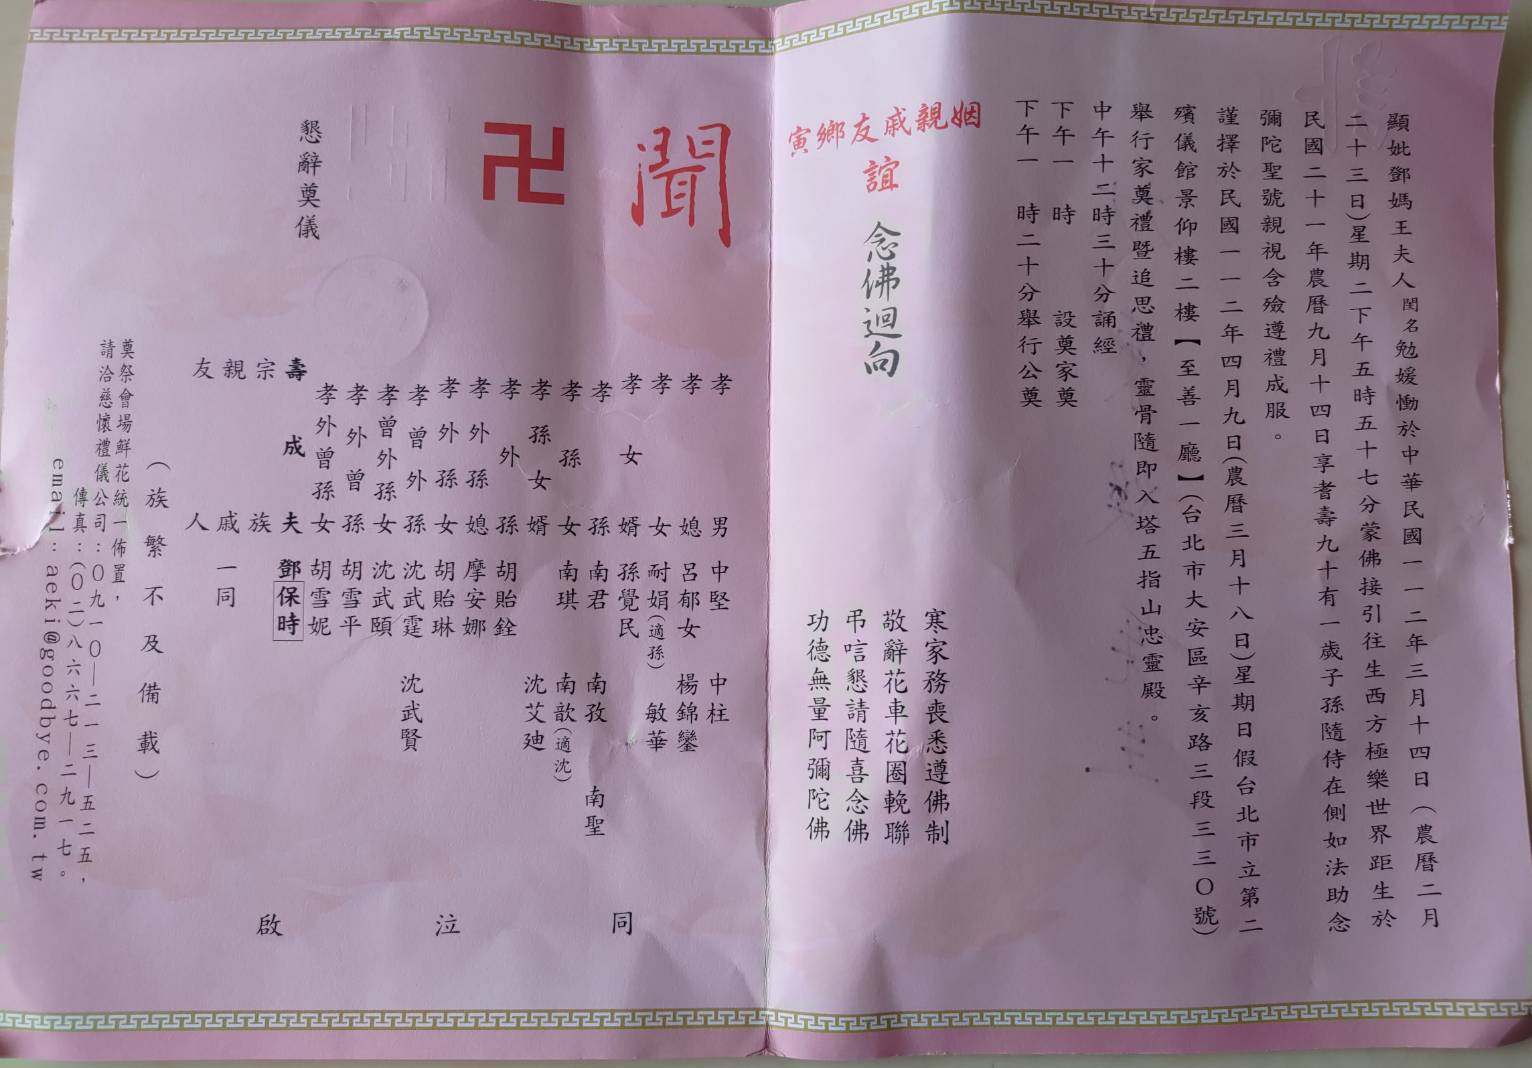 顯妣鄧媽王夫人閨名勉媛慟於中華民國一一二年三月十四日(農曆二月
二十三日)星期二下午五時五十七分蒙佛接引往生西方極樂世界距生於
民國二十一年農曆九月十四日享耆壽九十有一歲子孫隨侍在側如法助念
彌陀聖號親視含殮遵禮成服。
謹擇於民國一一二年四月九日(農曆三月十八日)星期日假台北市立第二
殯儀館景仰樓二樓【至善一廳】(台北市大安區辛亥路三段三三〇號)
舉行家奠禮暨追思禮,靈骨隨即入塔五指山忠靈殿。
中午十二時三十分誦經
下午一時 設奠家奠
下午一時二十分舉行公奠
姻親戚友鄉寅
誼
念佛迴向
寒家務喪悉遵佛制
敬辭花車花圈輓聯
弔唁懇請隨喜念佛
功德無量阿彌陀佛
聞
卍
懇辭奠儀
孝男 中堅 中柱
孝媳 呂郁女 楊錦鑾
孝女 耐娟(適孫) 敏華
孝女婿 孫覺民
孝孫 南君 南孜 南聖
孝孫女 南琪 南歆(適沈)
孝孫女婿 沈艾廸
孝外孫 胡貽銓
孝外孫媳 摩安娜
孝外孫女 胡貽琳
孝曾外孫 沈武霆 沈武賢
孝曾外孫女 沈武頤
孝外曾孫 胡雪平
孝外曾孫女 胡雪妮
壽成夫 鄧保時
宗族
親戚一同
友人
同泣啟
(族繁不及備載)
奠祭會場鮮花統一佈置,
請洽慈懷禮儀公司:〇九一〇—二一三—五二五,
傳真:(〇二)八六六七—二九一七。
email:aeki@goodbye.com.tw